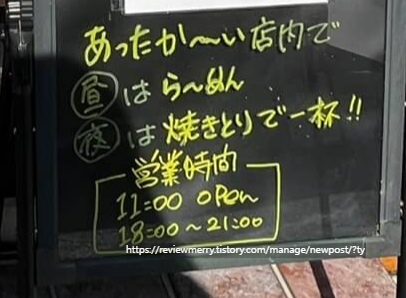 あったか〜い店内で
昼はら〜めん
夜は焼きとりで一杯!!
営業時間
11:00 OPEN
18:00〜21:00
https://reviewmerry.tistory.com/manage/newpost/?ty